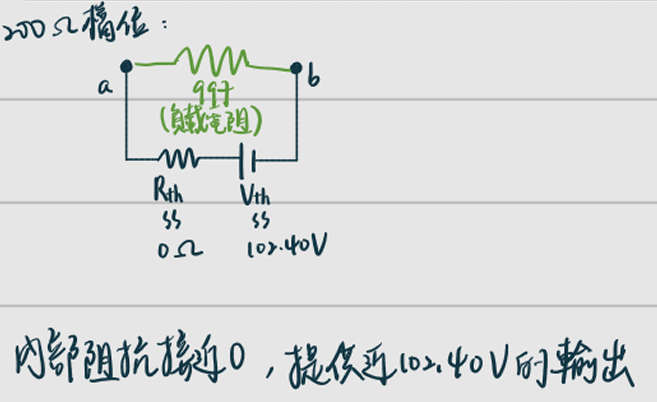 200Ω檔位：
a
b
997
(負載電阻)
Rth
Vth
SS
SS
0Ω
102.40V
內部阻抗接近0，提供近102.40V的輸出